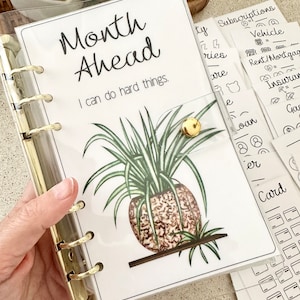 Month
Ahead
I can do hard things.
Subscriptions
Vehicle
Rent/Mortgage
Insurance
Card